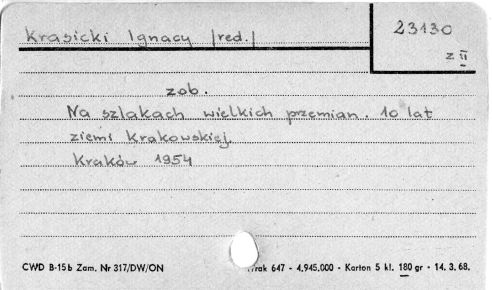 Krasicki Ignacy /red./
23130
z II
zob.
Na szlakach wielkich przemian. 10 lat
ziemi Krakowskiej
Kraków 1954
CWD B-15b Zam. Nr 317/DW/ON
rak 647 - 4.945.000 - Karton 5 kl. 180 gr - 14. 3. 68.